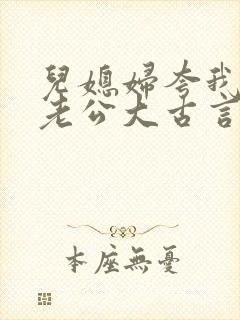 兒媳婦夸我
老公大古言
本座無憂